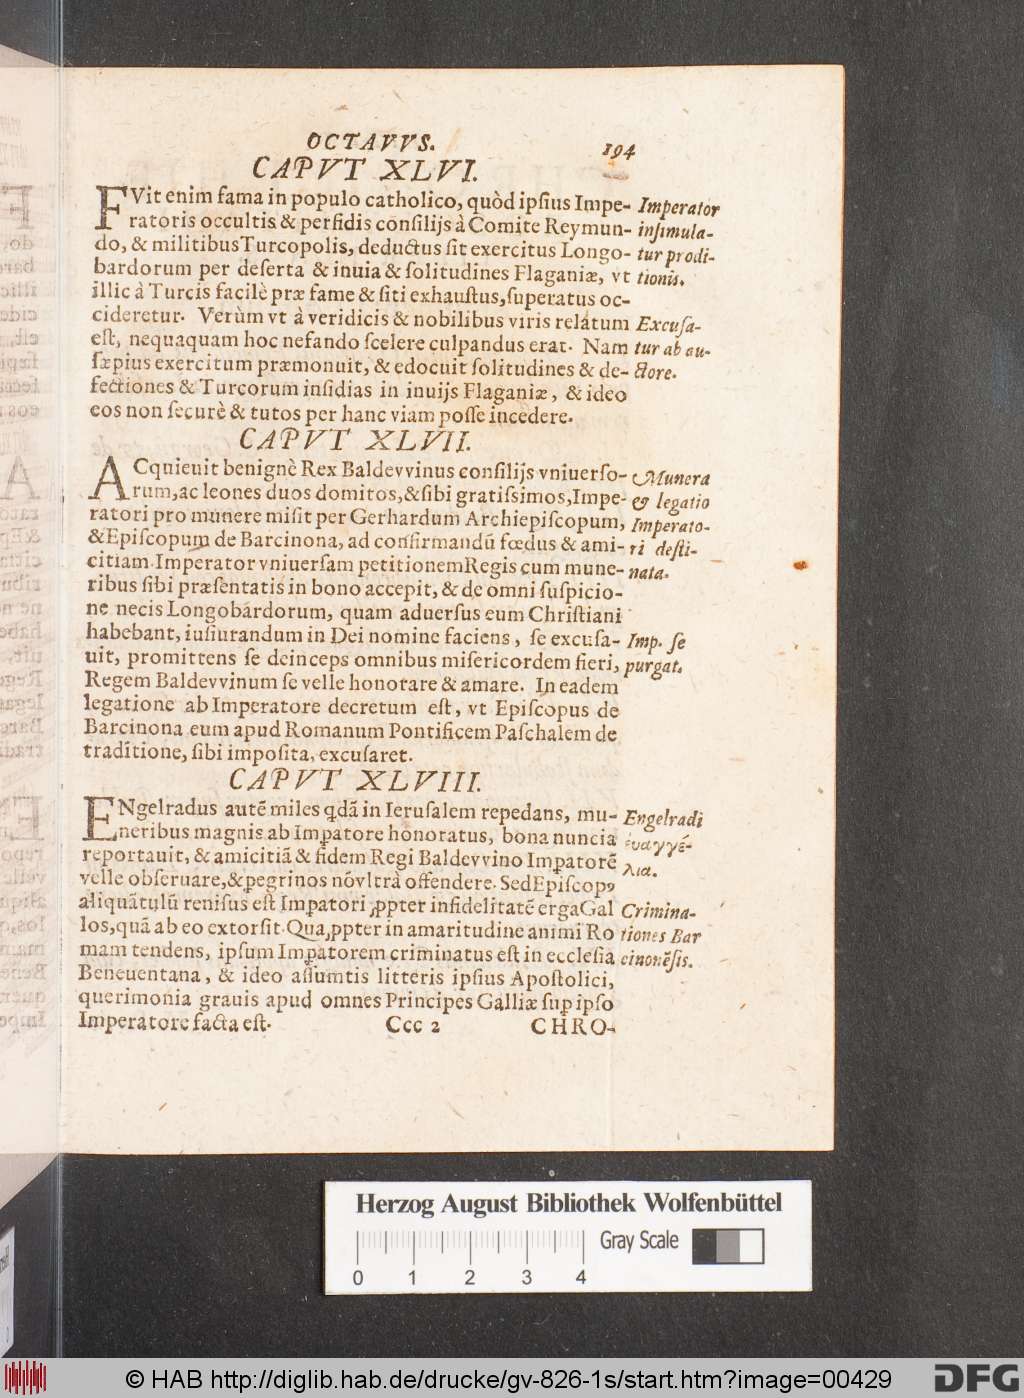 OCTAVVS.
194
CAPVT XLVI.
FVit enim fama in populo catholico, quòd ipſius Impe-
ratoris occultis & perfidis conſilijs à Comite Reymun-
do, & militibus Turcopolis, deductus ſit exercitus Longo-
bardorum per deſerta & inuia & ſolitudines Flaganiæ, vt
illic à Turcis facilè præ fame & ſiti exhauſtus, ſuperatus oc-
cideretur. Verùm vt à veridicis & nobilibus viris relatum
eſt, nequaquam hoc nefando ſcelere culpandus erat. Nam
ſæpius exercitum præmonuit, & edocuit ſolitudines & de-
fectiones & Turcorum inſidias in inuijs Flaganiæ, & ideo
eos non ſecurè & tutos per hanc viam poſſe incedere.
Imperator
inſimula-
tur prodi-
tionis.
Excuſa-
tur ab au-
ctore.
CAPVT XLVII.
ACquieuit benignè Rex Baldevvinus conſilijs vniuerſo-
rum, ac leones duos domitos, & ſibi gratiſsimos, Impe-
ratori pro munere miſit per Gerhardum Archiepiſcopum,
& Epiſcopum de Barcinona, ad confirmandũ fœdus & ami-
citiam. Imperator vniuerſam petitionem Regis cum mune-
ribus ſibi præſentatis in bono accepit, & de omni ſuſpicio-
ne necis Longobardorum, quam aduerſus eum Chriſtiani
habebant, iuſiurandum in Dei nomine faciens, ſe excuſa-
uit, promittens ſe deinceps omnibus miſericordem fieri,
Regem Baldevvinum ſe velle honorare & amare. In eadem
legatione ab Imperatore decretum eſt, vt Epiſcopus de
Barcinona eum apud Romanum Pontificem Paſchalem de
traditione, ſibi impoſita, excuſaret.
Munera
& legatio
Imperato-
ri deſti-
nata.
Imp. ſe
purgat.
CAPVT XLVIII.
ENgelradus autẽ miles qdã in Ieruſalem repedans, mu-
neribus magnis ab Imꝑatore honoratus, bona nuncia
reportauit, & amicitiã & fidem Regi Baldevvino Imꝑatorẽ
velle obſeruare, & ꝑegrinos nõ vltrà offendere. Sed Epiſcopꝰ
aliquãtulũ reniſus eſt Imꝑatori ꝓpter infidelitatẽ erga Gal
los, quã ab eo extorſit. Qua ꝓpter in amaritudine animi Ro
mam tendens, ipſum Imꝑatorem criminatus eſt in eccleſia
Beneuentana, & ideo aſſumtis litteris ipſius Apoſtolici,
querimonia grauis apud omnes Principes Galliæ ſuꝑ ipſo
Imperatore facta eſt.
Engelradi
ευαγγέ-
λια.
Crimina-
tiones Bar
cinonẽſis.
Ccc 2
CHRO-
Herzog August Bibliothek Wolfenbüttel
Gray Scale
0 1 2 3 4
© HAB http://diglib.hab.de/drucke/gv-826-1s/start.htm?image=00429
DFG